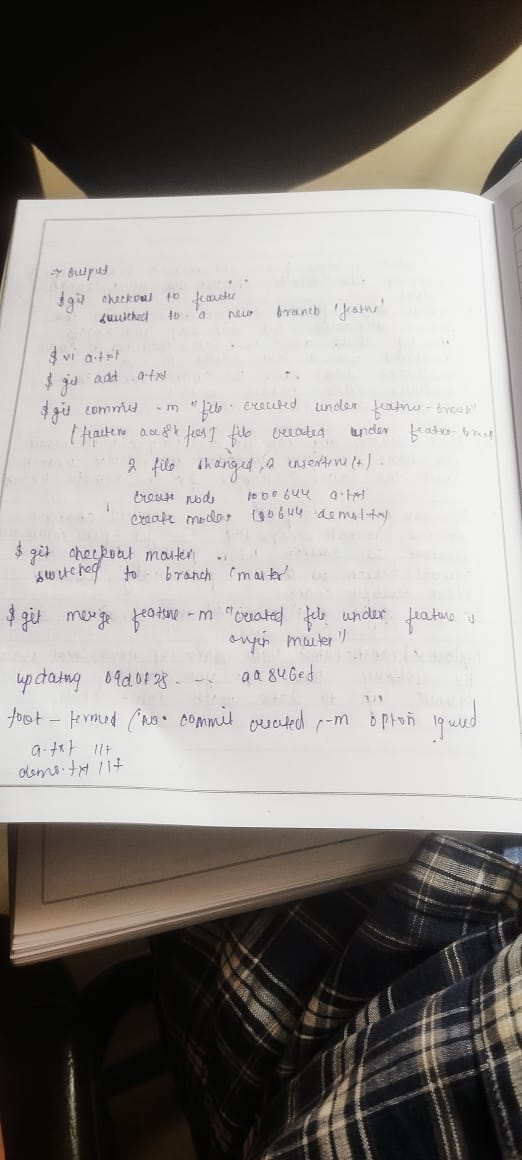 → output
$git checkout to feature
switched to a new branch 'feature'
$ vi a.txt
$ git add a.txt
$git commit -m "file created under feature-branch"
file created under
2 file changed, 2 insertion(+).
create mode 1000644 a.txt
create mode 100644 demo.txt
$ git checkout master
switched to branch 'master'
$ git merge feature -m "created file under feature
origin master")
updating 09d0f28 ...
commit created, -m option
a.txt 1 1+
demo.txt 1 1+